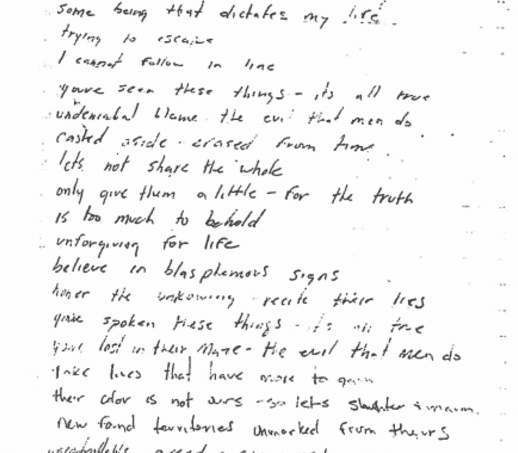 some being that dictates my life
trying to escape
I cannot follow in line
youve seen these things - its all true
undeniabal blame the evil that men do
casted aside - erased from time
lets not share the whole
only give them a little - for the truth
is too much to behold
unforgiving for life
believe in blasphemous signs
honer the unkowing recite their lies
youve spoken these things - its all true
your lost in their maze - the evil that men do
take lives that have more to gain
their color is not ours - so lets slaughter & maim
new found territories unmarked from theirs